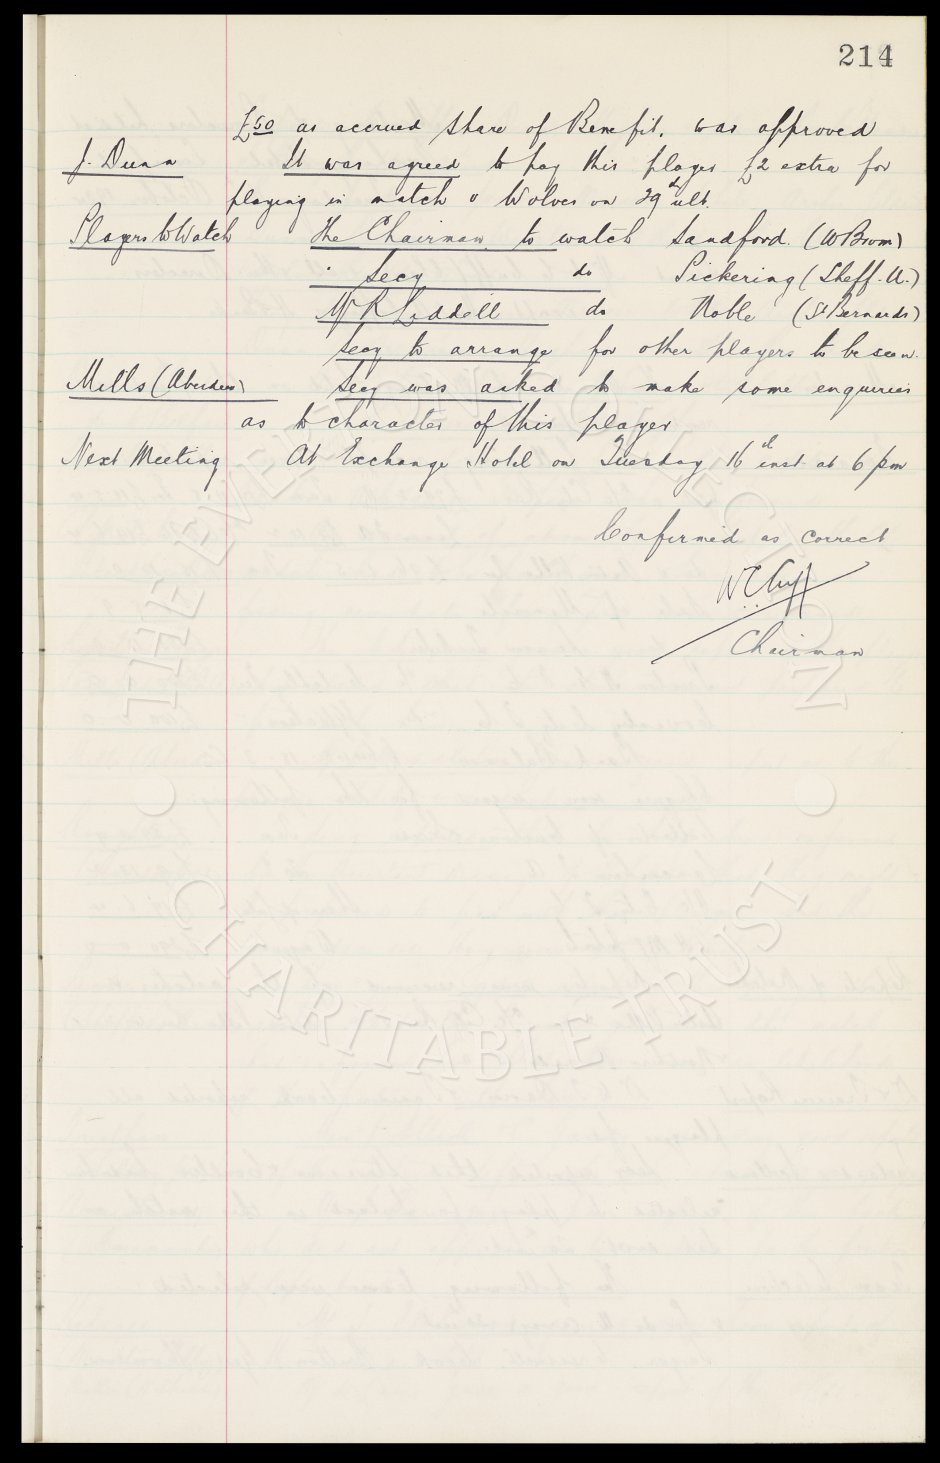 214
£50 as accrued share of Benefit. was approved
J. Dunn It was agreed to pay this player £2 extra for
playing in match v Wolves on 29th ult.
Players to Watch The Chairman to watch Sandford. (W Brom)
" Secy do Pickering (Sheff. U.)
Mr R Liddell do Noble (St Bernards)
Secy to arrange for other players to be seen.
Mills (Aberdeen) Secy was asked to make some enquiries
as to character of this player
Next Meeting At Exchange Hotel on Tuesday 16th inst at 6 pm
Confirmed as correct
W C Cuff
Chairman
THE EVERTON COLLECTION
CHARITABLE TRUST